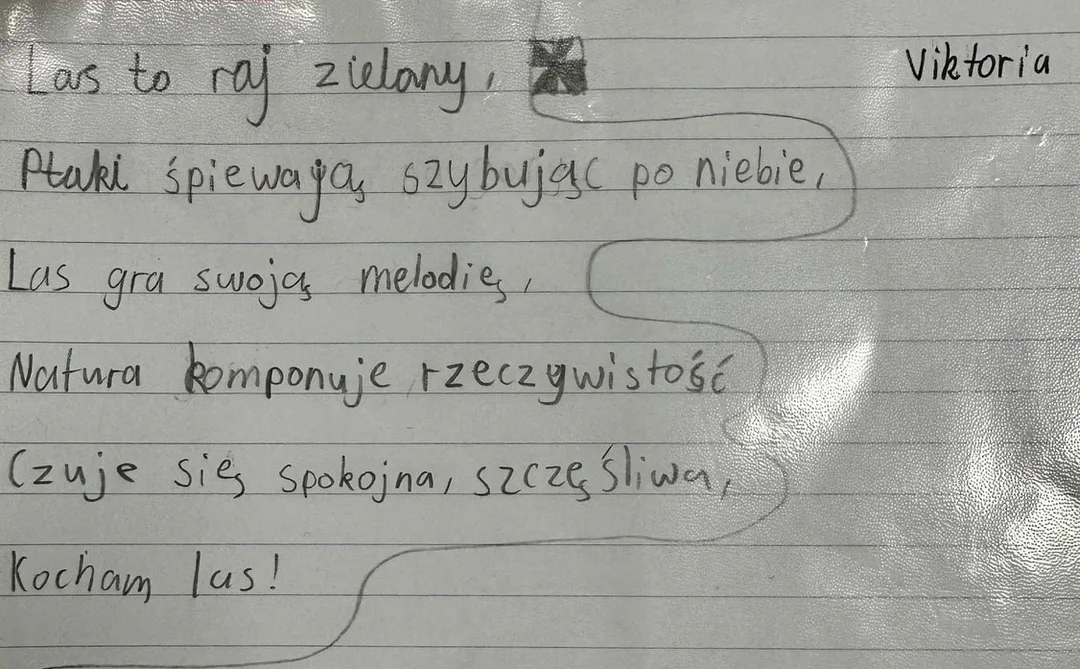 Las to raj zielany,
Viktoria
Ptaki śpiewają szybując po niebie,
Las gra swoją melodię,
Natura komponuje rzeczywistość
Czuje się spokojna, szczęśliwa,
Kocham las!